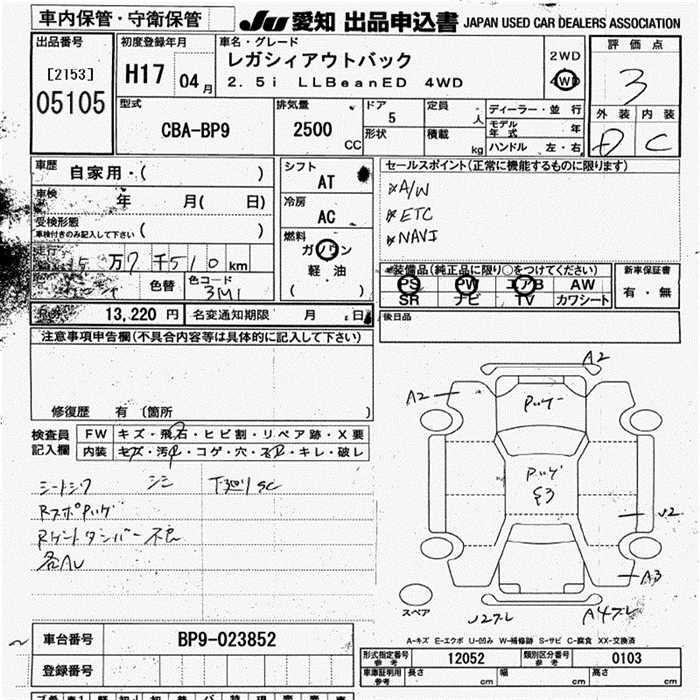 車内保管・守衛保管
JU 愛知 出品申込書 JAPAN USED CAR DEALERS ASSOCIATION
出品番号
[2153]
05105
初度登録年月
H17 04月
車名・グレード
レガシィアウトバック
2.5i LLBeanED 4WD
2WD
4WD
評価点
3
外装 内装
D C
型式
CBA-BP9
排気量
2500 CC
ドア
5
形状
定員
人
積載
kg
ディーラー・並行
モデル年式 年
ハンドル 左・右
車歴 自家用・( )
車検 年 月( 日)
受検形態
車検付きのみ記入して下さい ( )
走行 5万7千510km
色替 色コード
3M1
シフト
AT
冷房
AC
燃料
ガソリン
軽油
( )
セールスポイント(正常に機能するものに限ります)
*A/W
*ETC
*NAVI
装備品(純正品に限り○をつけてください)
PS PW エアB AW
SR ナビ TV カワシート
新車保証書
有・無
13,220円 名変通知期限 月 日
後日品
注意事項申告欄(不具合内容等は具体的に記入して下さい)
修復歴 有(箇所 )
検査員
記入欄
FW キズ・飛石・ヒビ割・リペア跡・X要
内装 キズ・汚れ・コゲ・穴・スレ・キレ・破レ
シートシワ シミ 下廻りSC
RスポPハゲ
Rゲートダンパー不良
各AU
A2
A2
Pハゲ
Pハゲ
E3
U2
A3
スペア
U2ブレ
A4ブレ
A-キズ E-エクボ U-凹み W-補修跡 S-サビ C-腐食 XX-交換済
車台番号 BP9-023852
登録番号
形式指定番号
参考
12052
類別区分番号
参考
0103
車庫証明用
参考
長さ cm 幅 cm 高さ cm